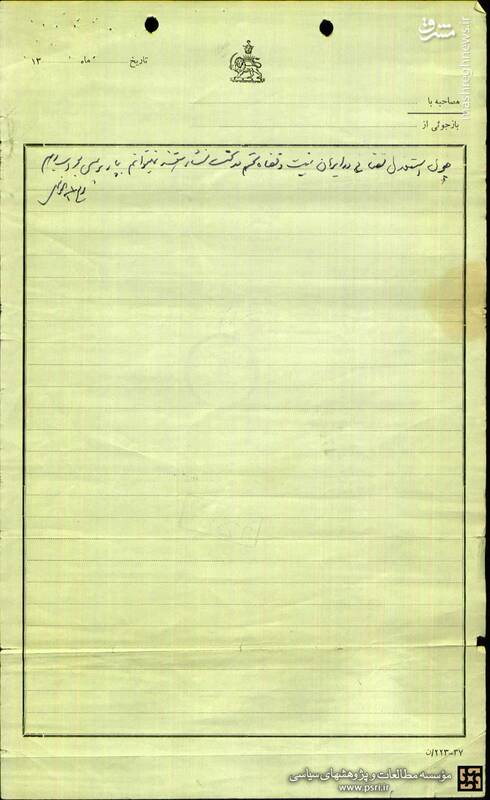 مشرق
Mashreghnews.ir
تاریخ ماه ۱۳
مصاحبه با
بازجوئی از
چون استقلال قضایی در ایران نیست و قضات محترم تحت فشار هستند نمیتوانم به بازپرسی جواب بدهم
۲۲۳-۳۷/ن
مؤسسه مطالعات و پژوهشهای سیاسی
www.psri.ir